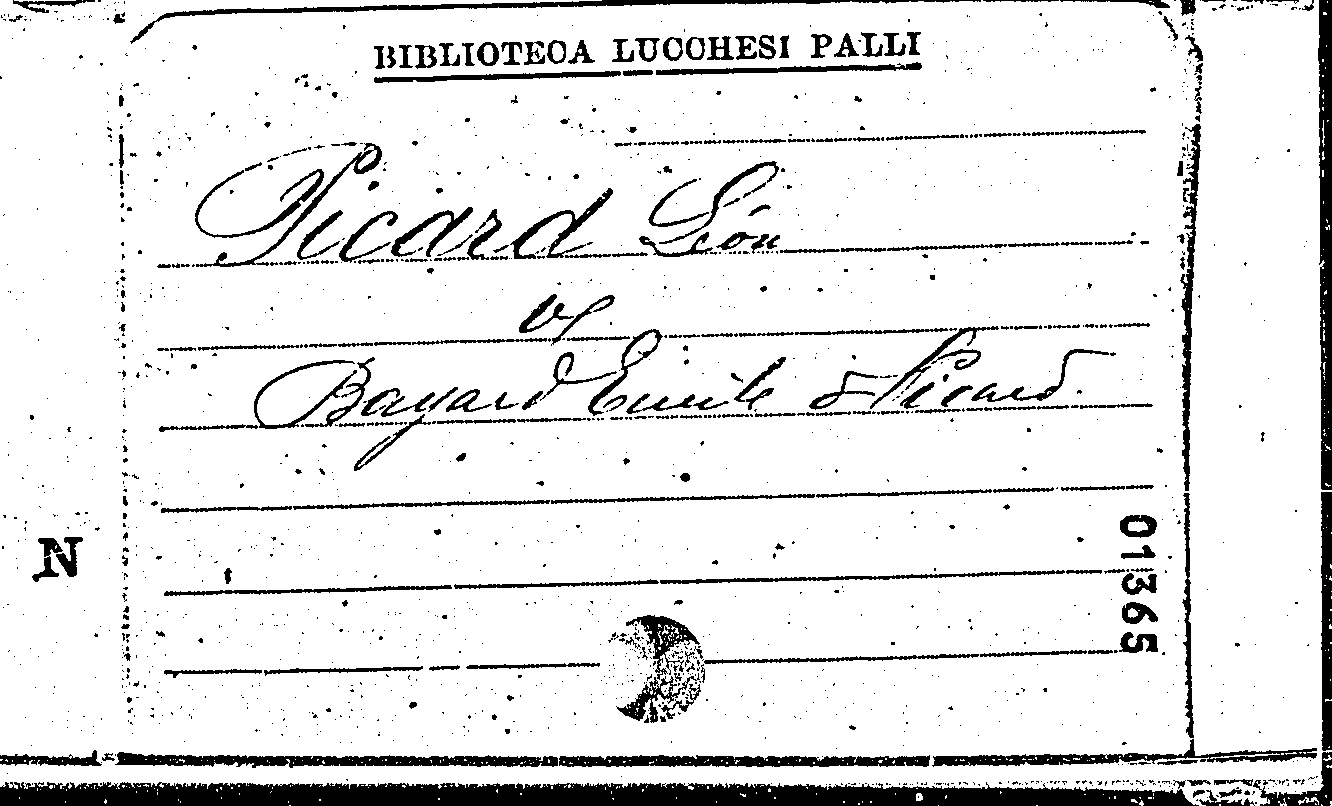 BIBLIOTECA LUCCHESI PALLI
Picard Léon
v
Bayard Emile & Picard
N
01365